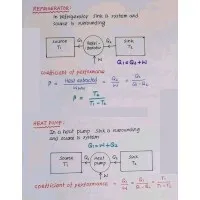 REFRIGERATOR:
In Refrigerator sink is system and source is surrounding
Source T₁
Q₁
Refri-gerator
Q₂
Sink T₂
W
Q₁=Q₂+W
coefficient of performance
β = Heat extracted / = Q₂/W = Q₂/Q₁-Q₂
β = T₂/T₁-T₂
HEAT PUMP:
In a heat pump sink is surrounding and source is system
Q₁=W+Q₂
Source T₁
Q₁
Heat pump
Q₂
Sink T₂
W
coefficient of performance = Q₁/W = Q₁/Q₁-Q₂ = T₁/T₁-T₂